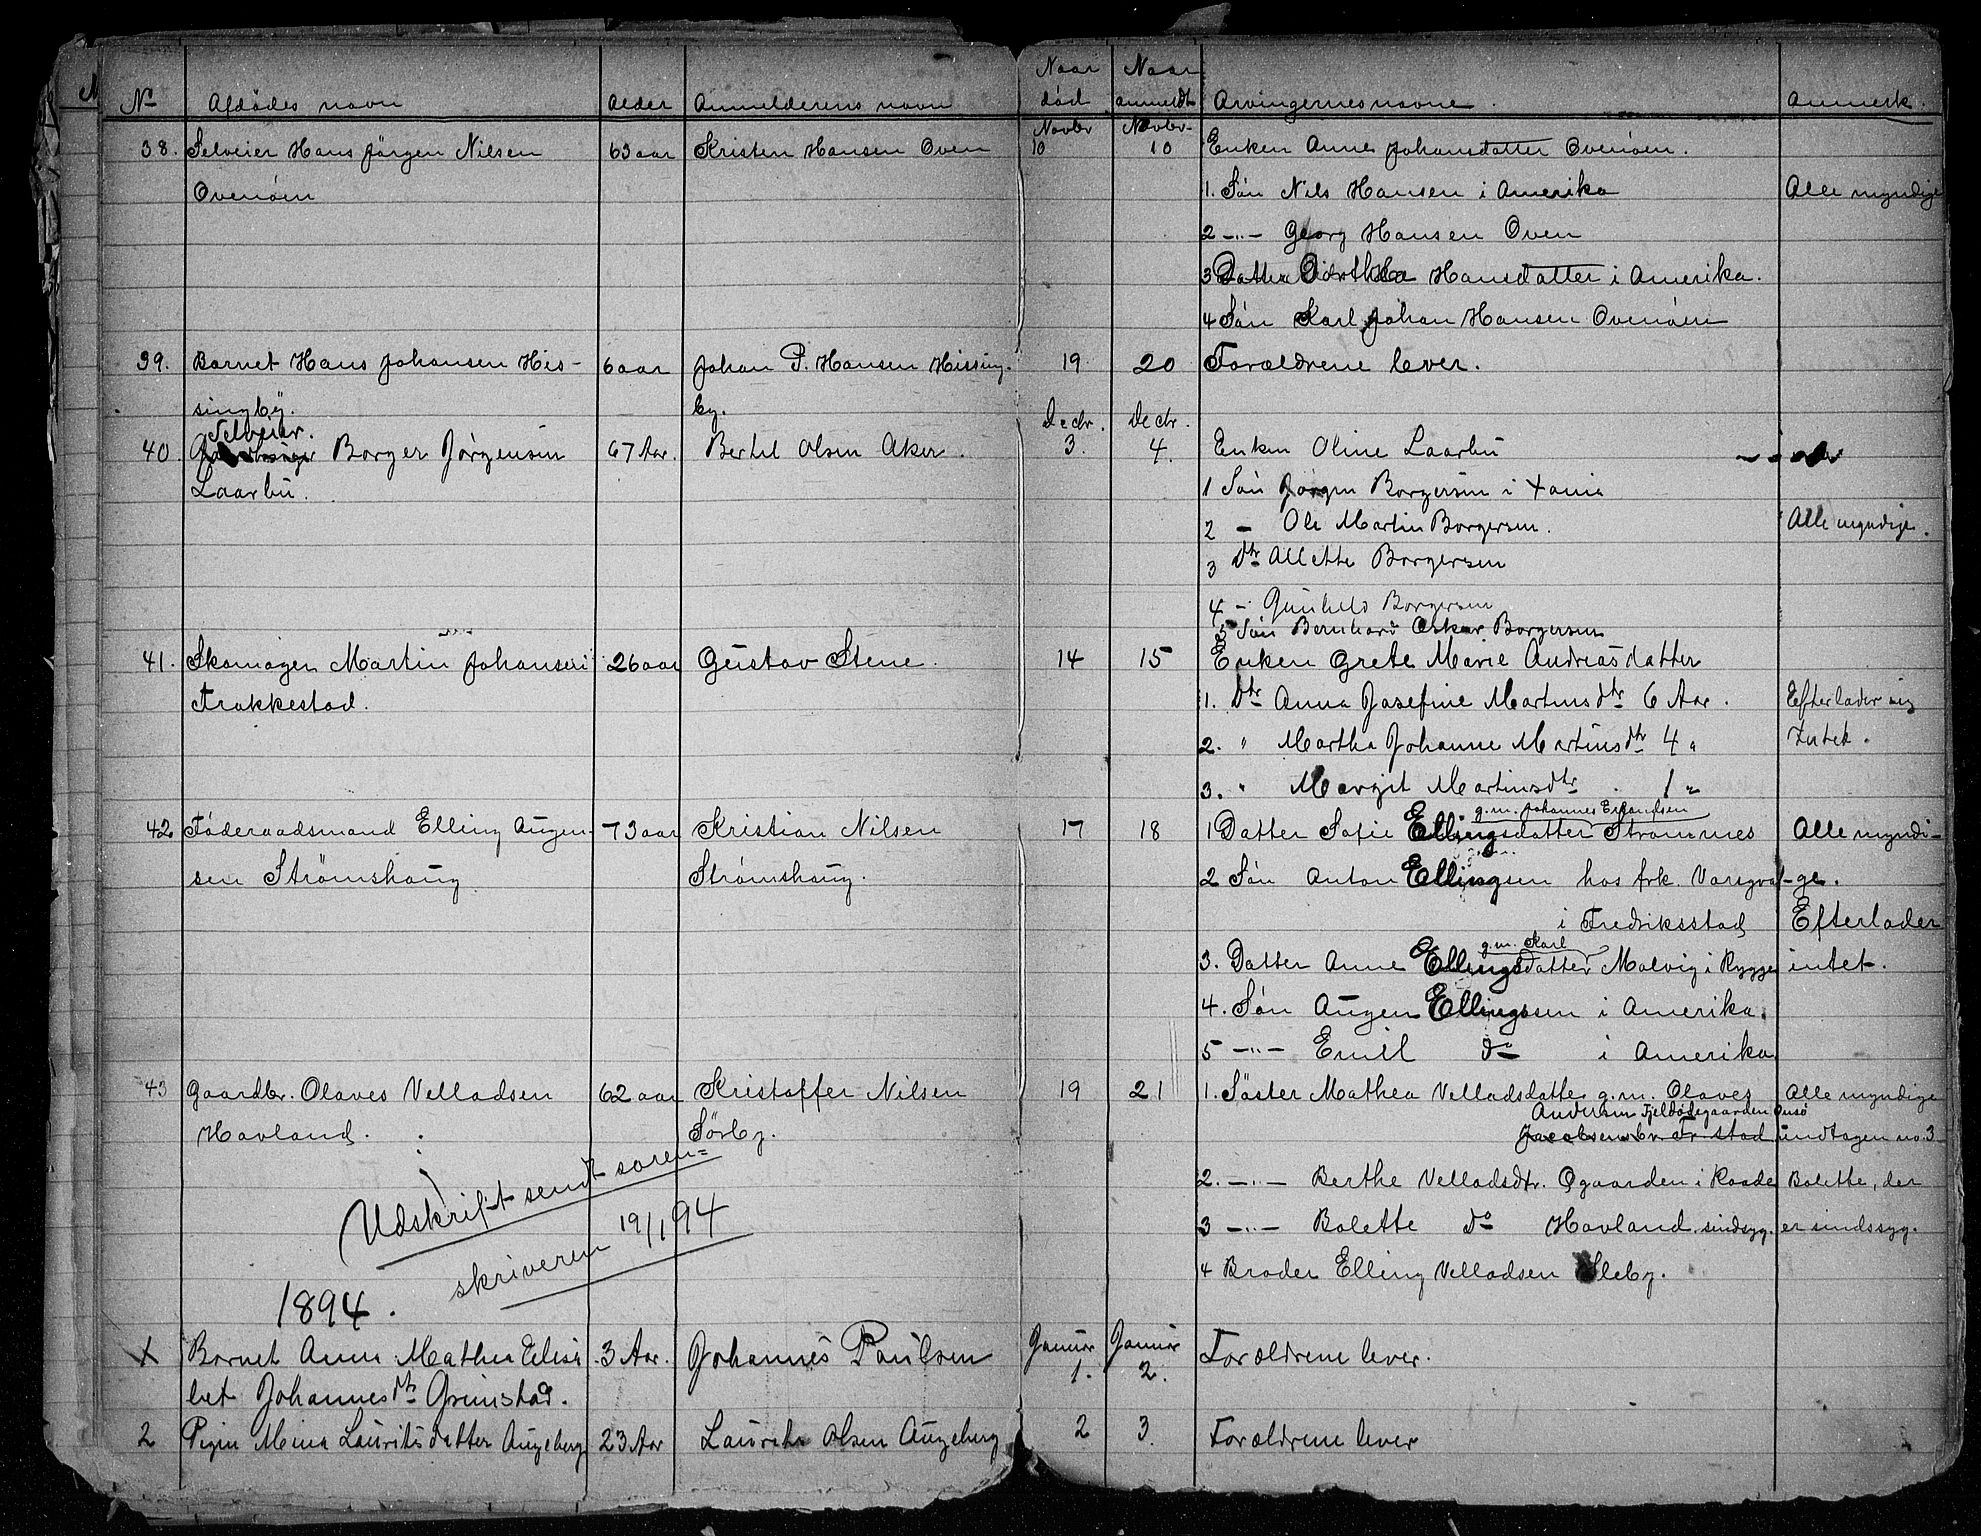 No Afdødes navn Alder Anmelderens navn Naar død Naar anmeldt Arvingernes navne. Anmerk.
Novbr Novbr
38. Selveier Hans Jørgen Nilsen 63 aar Kristen Hansen Oven 10 10 Enken Anne Johansdatter Ovenøen.
Ovenøen 1. Søn Nils Hansen i Amerika Alle myndige
2 -"- Georg Hansen Oven
3 Datter Dorthea Hansdatter i Amerika.
4 Søn Karl Johan Hansen Ovenøen
39. Barnet Hans Johansen His- 6 aar Johan P. Hansen Hissing- 19 20 Forældrene lever.
singby. by. Decbr. Decbr.
Selveier.
40. Borger Jørgensen 67 Aar. Bertel Olsen Aker. 3. 4. Enken Oline Laarbu
Laarbu. 1 Søn Jørgen Borgersen i Xania
2 - Ole Martin Borgersen. Alle myndige.
3 Dtr Allette Borgersen
4 - Gunhild Borgersen
5 Søn Bernhard Oskar Borgersen
41. Skomager Martin Johansen 26 aar Gustav Stene. 14 15 Enken Grete Marie Andreasdatter
Trøkkestad. 1. Dtr Anna Josefine Martinsdtr 6 Aar. Efterlader sig
2. " Martha Johanne Martinsdtr 4 " Intet.
3. " Margit Martinsdtr. 1 "
g.m. Johannes Erlandsen
42 Føderaadsmand Elling Augen- 73 aar Kristian Nilsen 17 18 1 Datter Sofie Ellingsdatter Strømnes Alle myndi-
sen Strømshaug. Strømshaug. 2 Søn Anton Ellingsen hos frk. -ge.
i Fredriksstad Efterlader
g.m. Karl
3. Datter Anne Ellingsdatter Malvig i Rygge intet.
4. Søn Augen Ellingsen i Amerika.
5 -"- Emil do i Amerika
43 Gaardbr. Olaves Velladsen 62 aar Kristoffer Nilsen 19 21 1. Søster Mathea Velladsdatter g.m. Olaves Alle myndige
Andersen Fjeldødegaarden Onsø
Havland. Sørby. Jacobsen br. Fr stad undtagen no. 3
Udskrift sendt soren= 2. -"- Berthe Velladsdtr. Øgaarden i Raade Bolette, der
skriveren 19/1 94 3 -"- Bolette do Havland sindsyg. er sindssyg.
4 Broder Elling Velladsen Sleby.
1894.
Januar Januar
1 Barnet Anna Mathea Elisa 3 Aar. Johannes Paulsen 1. 2. Forældrene lever.
bet Johannesdtr Grimstad.
2 Pigen Mina Lauritsdatter Augeberg 23 Aar Laurits Olsen Augeberg 2 3. Forældrene lever